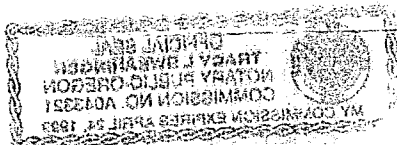 OFFICIAL SEAL
TRACY L. SWEARINGEN
NOTARY PUBLIC-OREGON
COMMISSION NO. A043321
MY COMMISSION EXPIRES APRIL 24, 1999